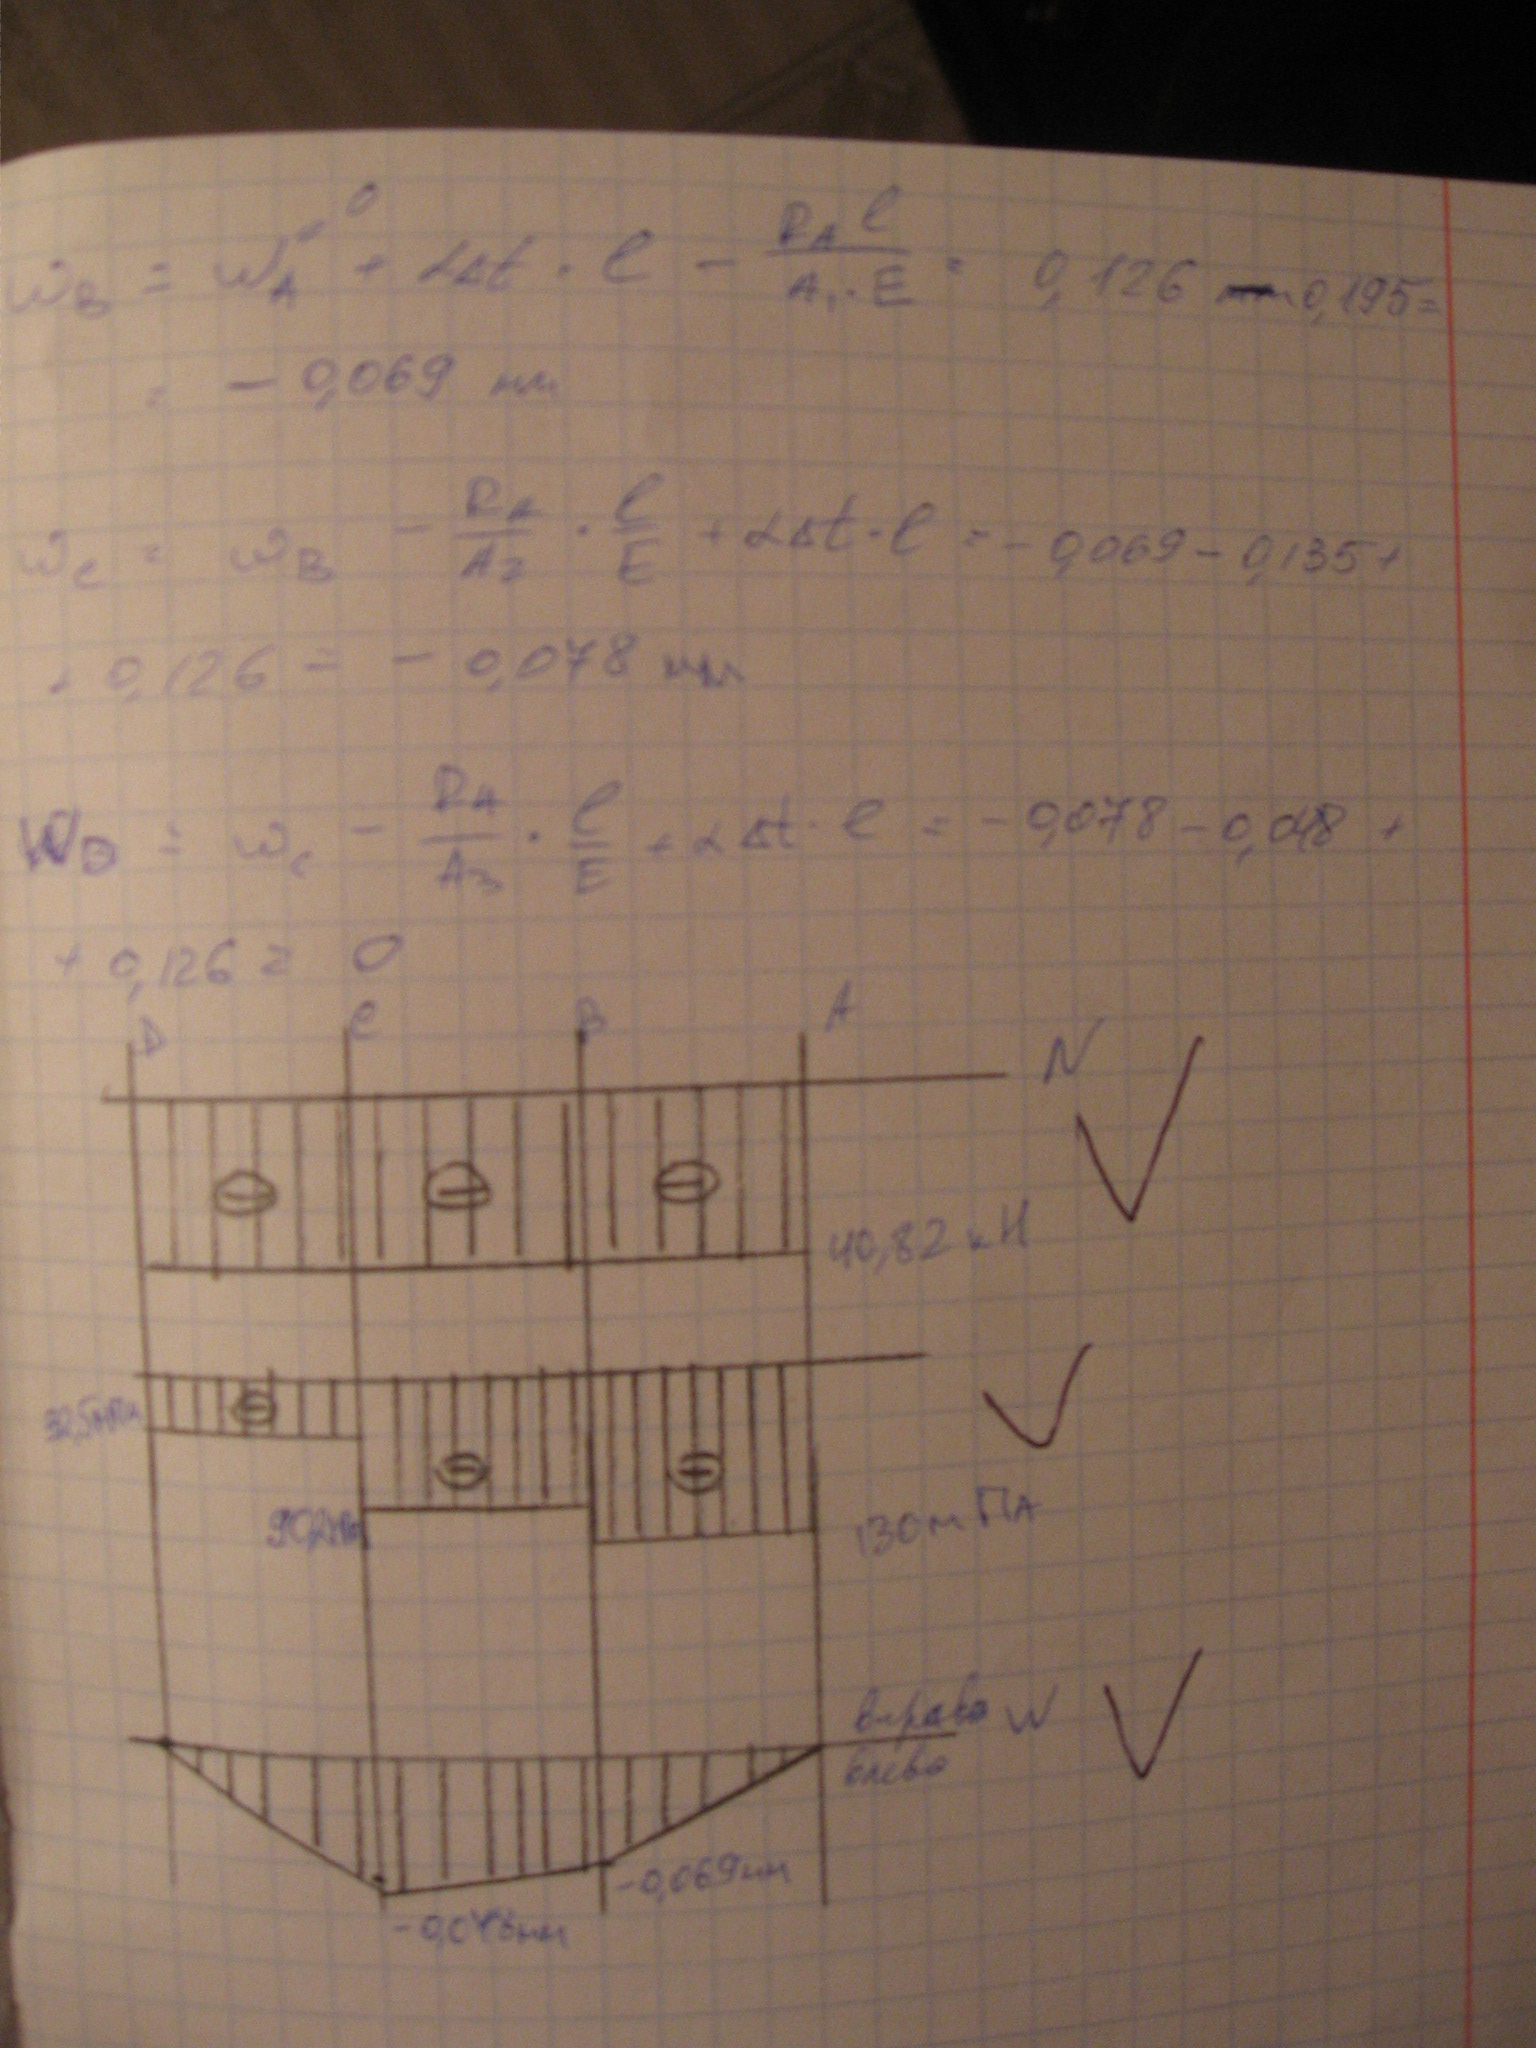 w_B = w_A⁰ + αΔt · l − (R_A l)/(A₁ · E) = 0,126 − 0,195 =
= − 0,069 мм
w_C = w_B − R_A/A₂ · l/E + αΔt · l = − 0,069 − 0,135 +
+ 0,126 = − 0,078 мм
w_D = w_C − R_A/A₃ · l/E + αΔt · l = − 0,078 − 0,048 +
+ 0,126 = 0
D C B A
N
⊖ ⊖ ⊖
40,82 кН
32,5 МПа ⊖
⊖ ⊖
90,2 МПа
130 мПА
вправо W
влево
−0,069 мм